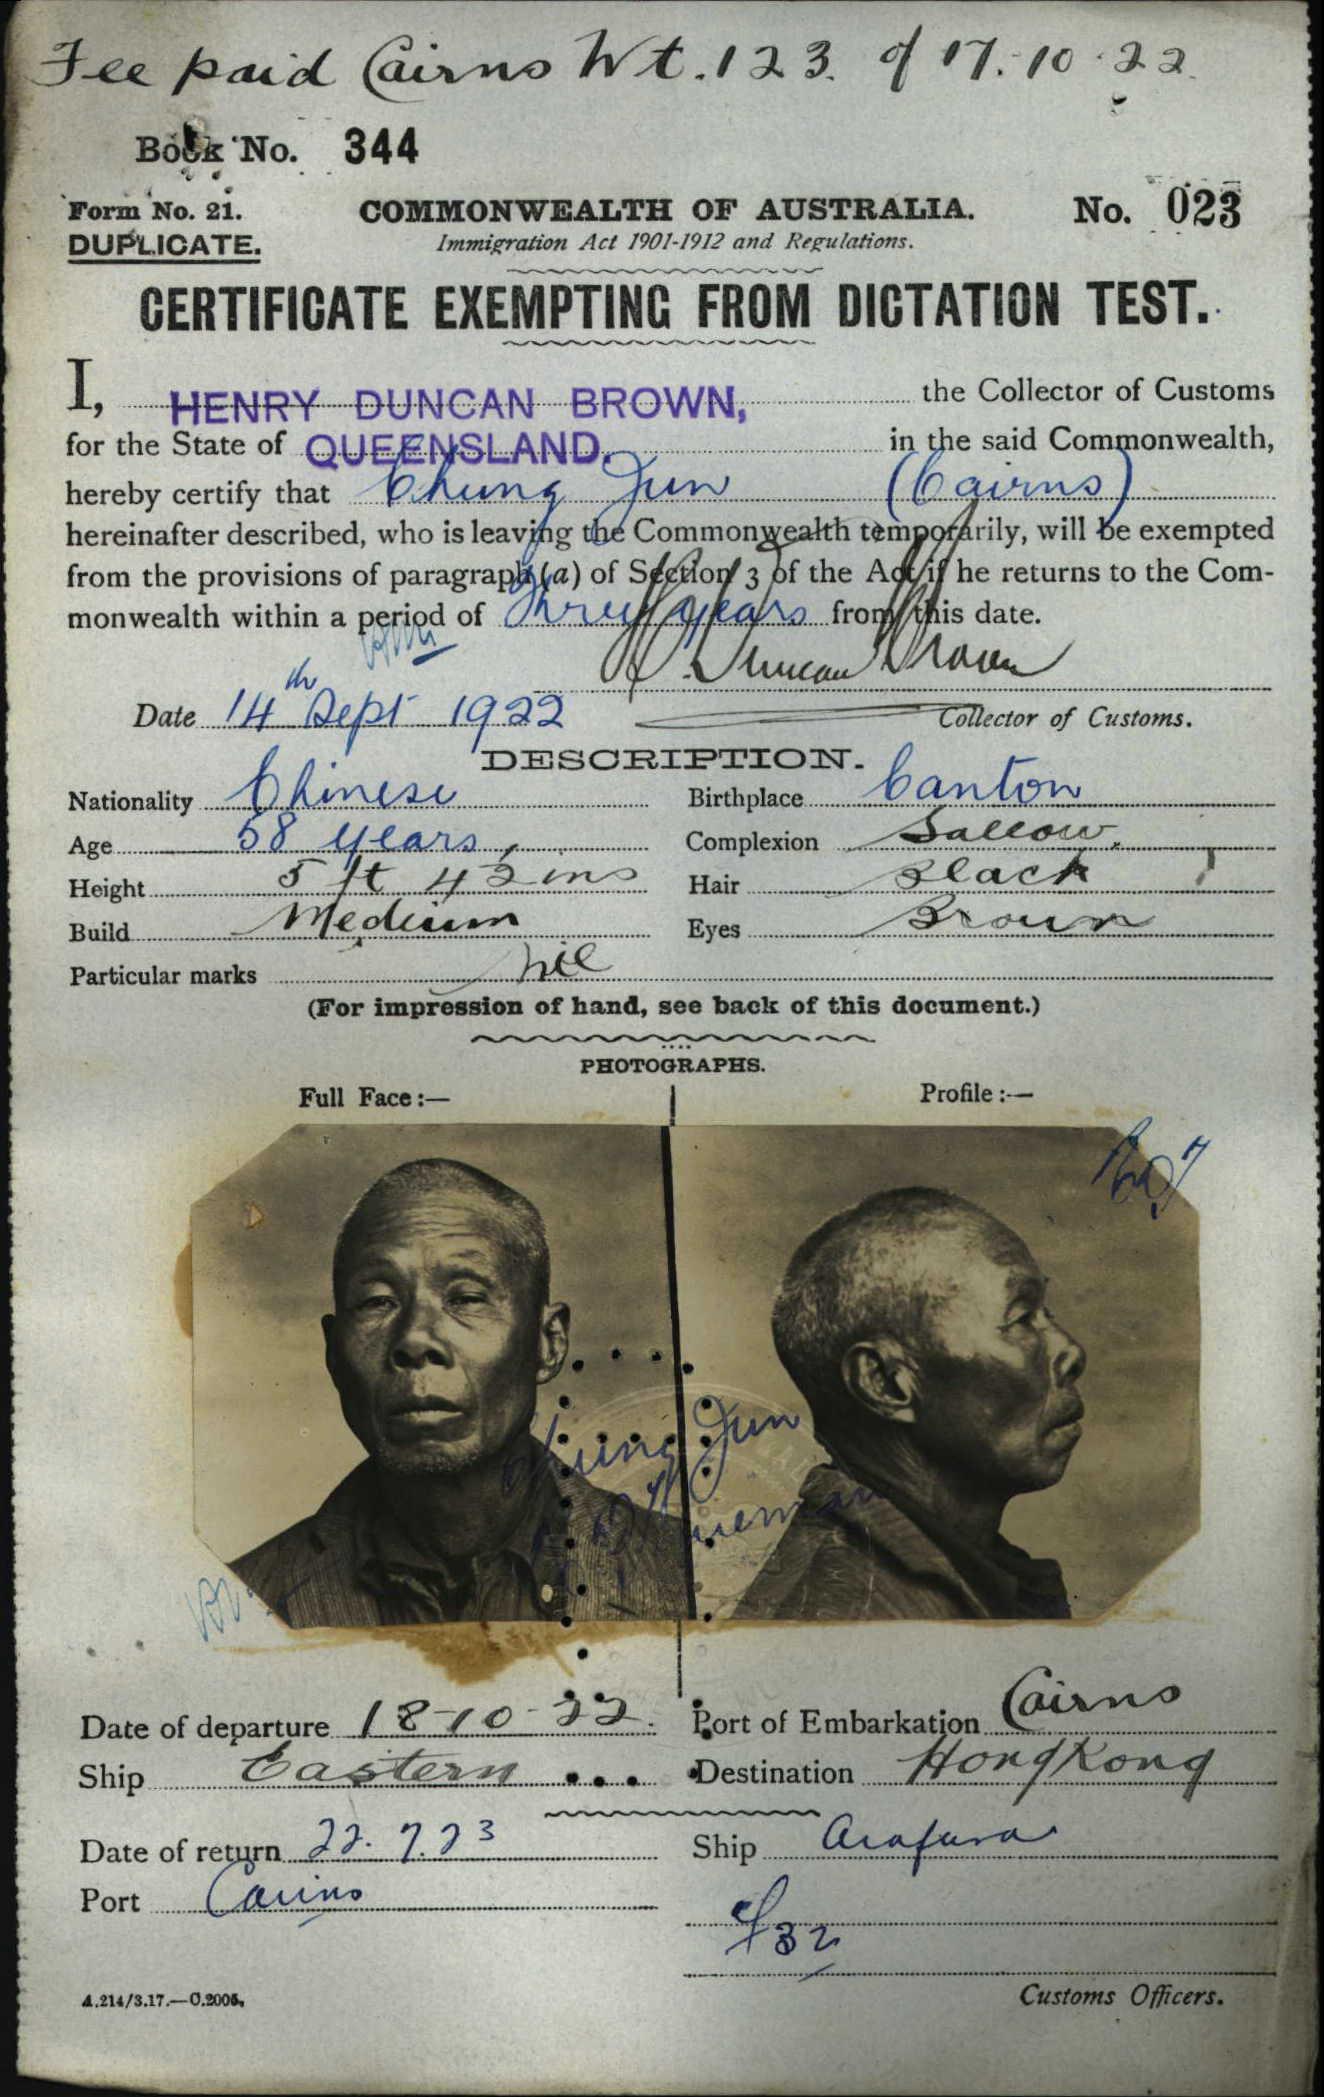 Fee paid Cairns Wt. 123. of 17.10.22.
Book No. 344
Form No. 21. COMMONWEALTH OF AUSTRALIA. No. 023
DUPLICATE. Immigration Act 1901-1912 and Regulations.
CERTIFICATE EXEMPTING FROM DICTATION TEST.
I, HENRY DUNCAN BROWN, the Collector of Customs
for the State of QUEENSLAND. in the said Commonwealth,
hereby certify that Chung Jun (Cairns)
hereinafter described, who is leaving the Commonwealth temporarily, will be exempted
from the provisions of paragraph (a) of Section 3 of the Act if he returns to the Com-
monwealth within a period of Three years from this date.
H. Duncan Brown
Date 14th Sept 1922 Collector of Customs.
DESCRIPTION.
Nationality Chinese Birthplace Canton
Age 58 years Complexion Sallow.
Height 5 ft 4½ ins Hair Black
Build Medium Eyes Brown
Particular marks nil
(For impression of hand, see back of this document.)
PHOTOGRAPHS.
Full Face:— Profile:—
Chung Jun
Date of departure 18-10-22. Port of Embarkation Cairns
Ship Eastern Destination HongKong
Date of return 22.7.23 Ship Arafura
Port Cairns
32
A.214/3.17.—C.2005. Customs Officers.